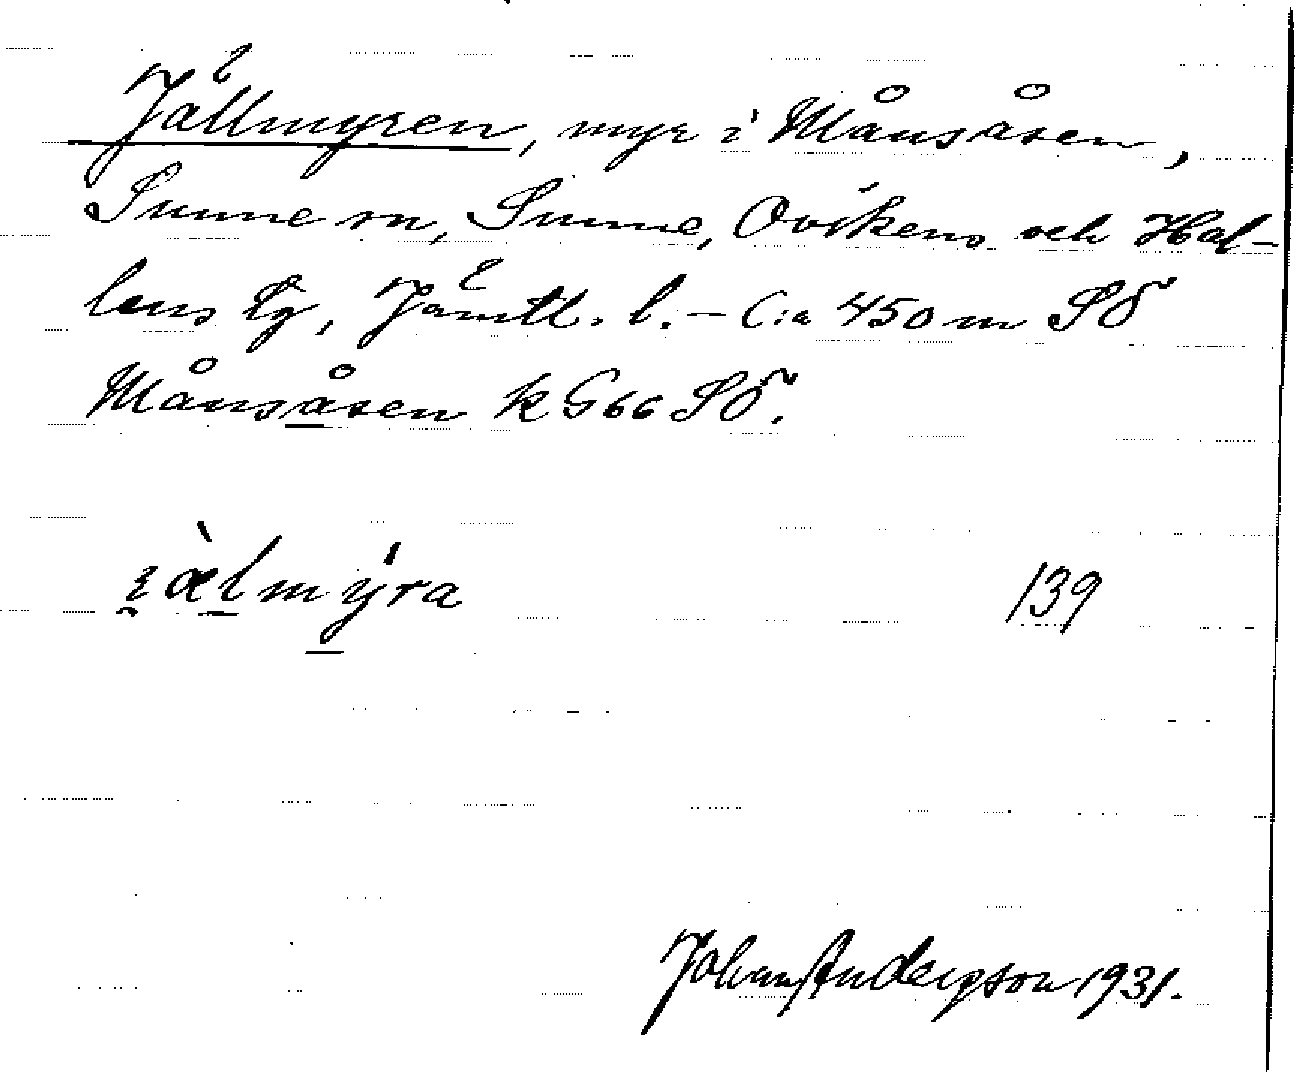 Jällmyren, myr i Månsåsen,
Sunne sn, Sunne, Ovikens och Hal-
lens tg, Jämtl. l. – C:a 450 m SÖ
Månsåsen k G 66 SÖ.
139
Johan Andersson 1931.